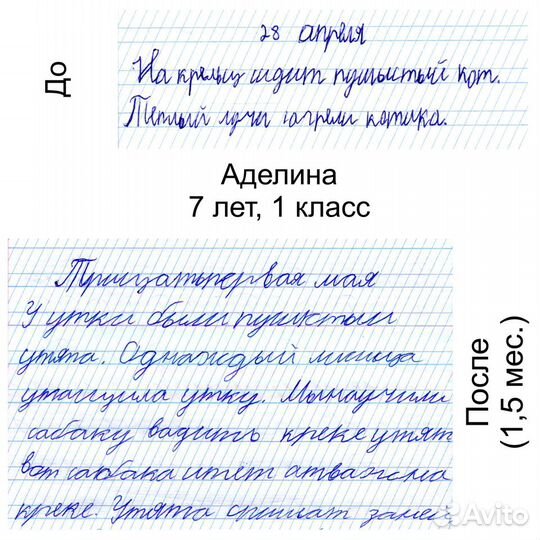 До
28 апреля
На крельц сидит пушыстый кот.
Теплый лучи согрели котика.
Аделина
7 лет, 1 класс
Трицатьпервая мая
У утки были пушистыи
утята. Однажды лисица
утащила утку. Мынаучили
сабаку вадить креке утят
вот сабака итёт атважна
креке. Утята спишат заней
После
(1,5 мес.)
Avito